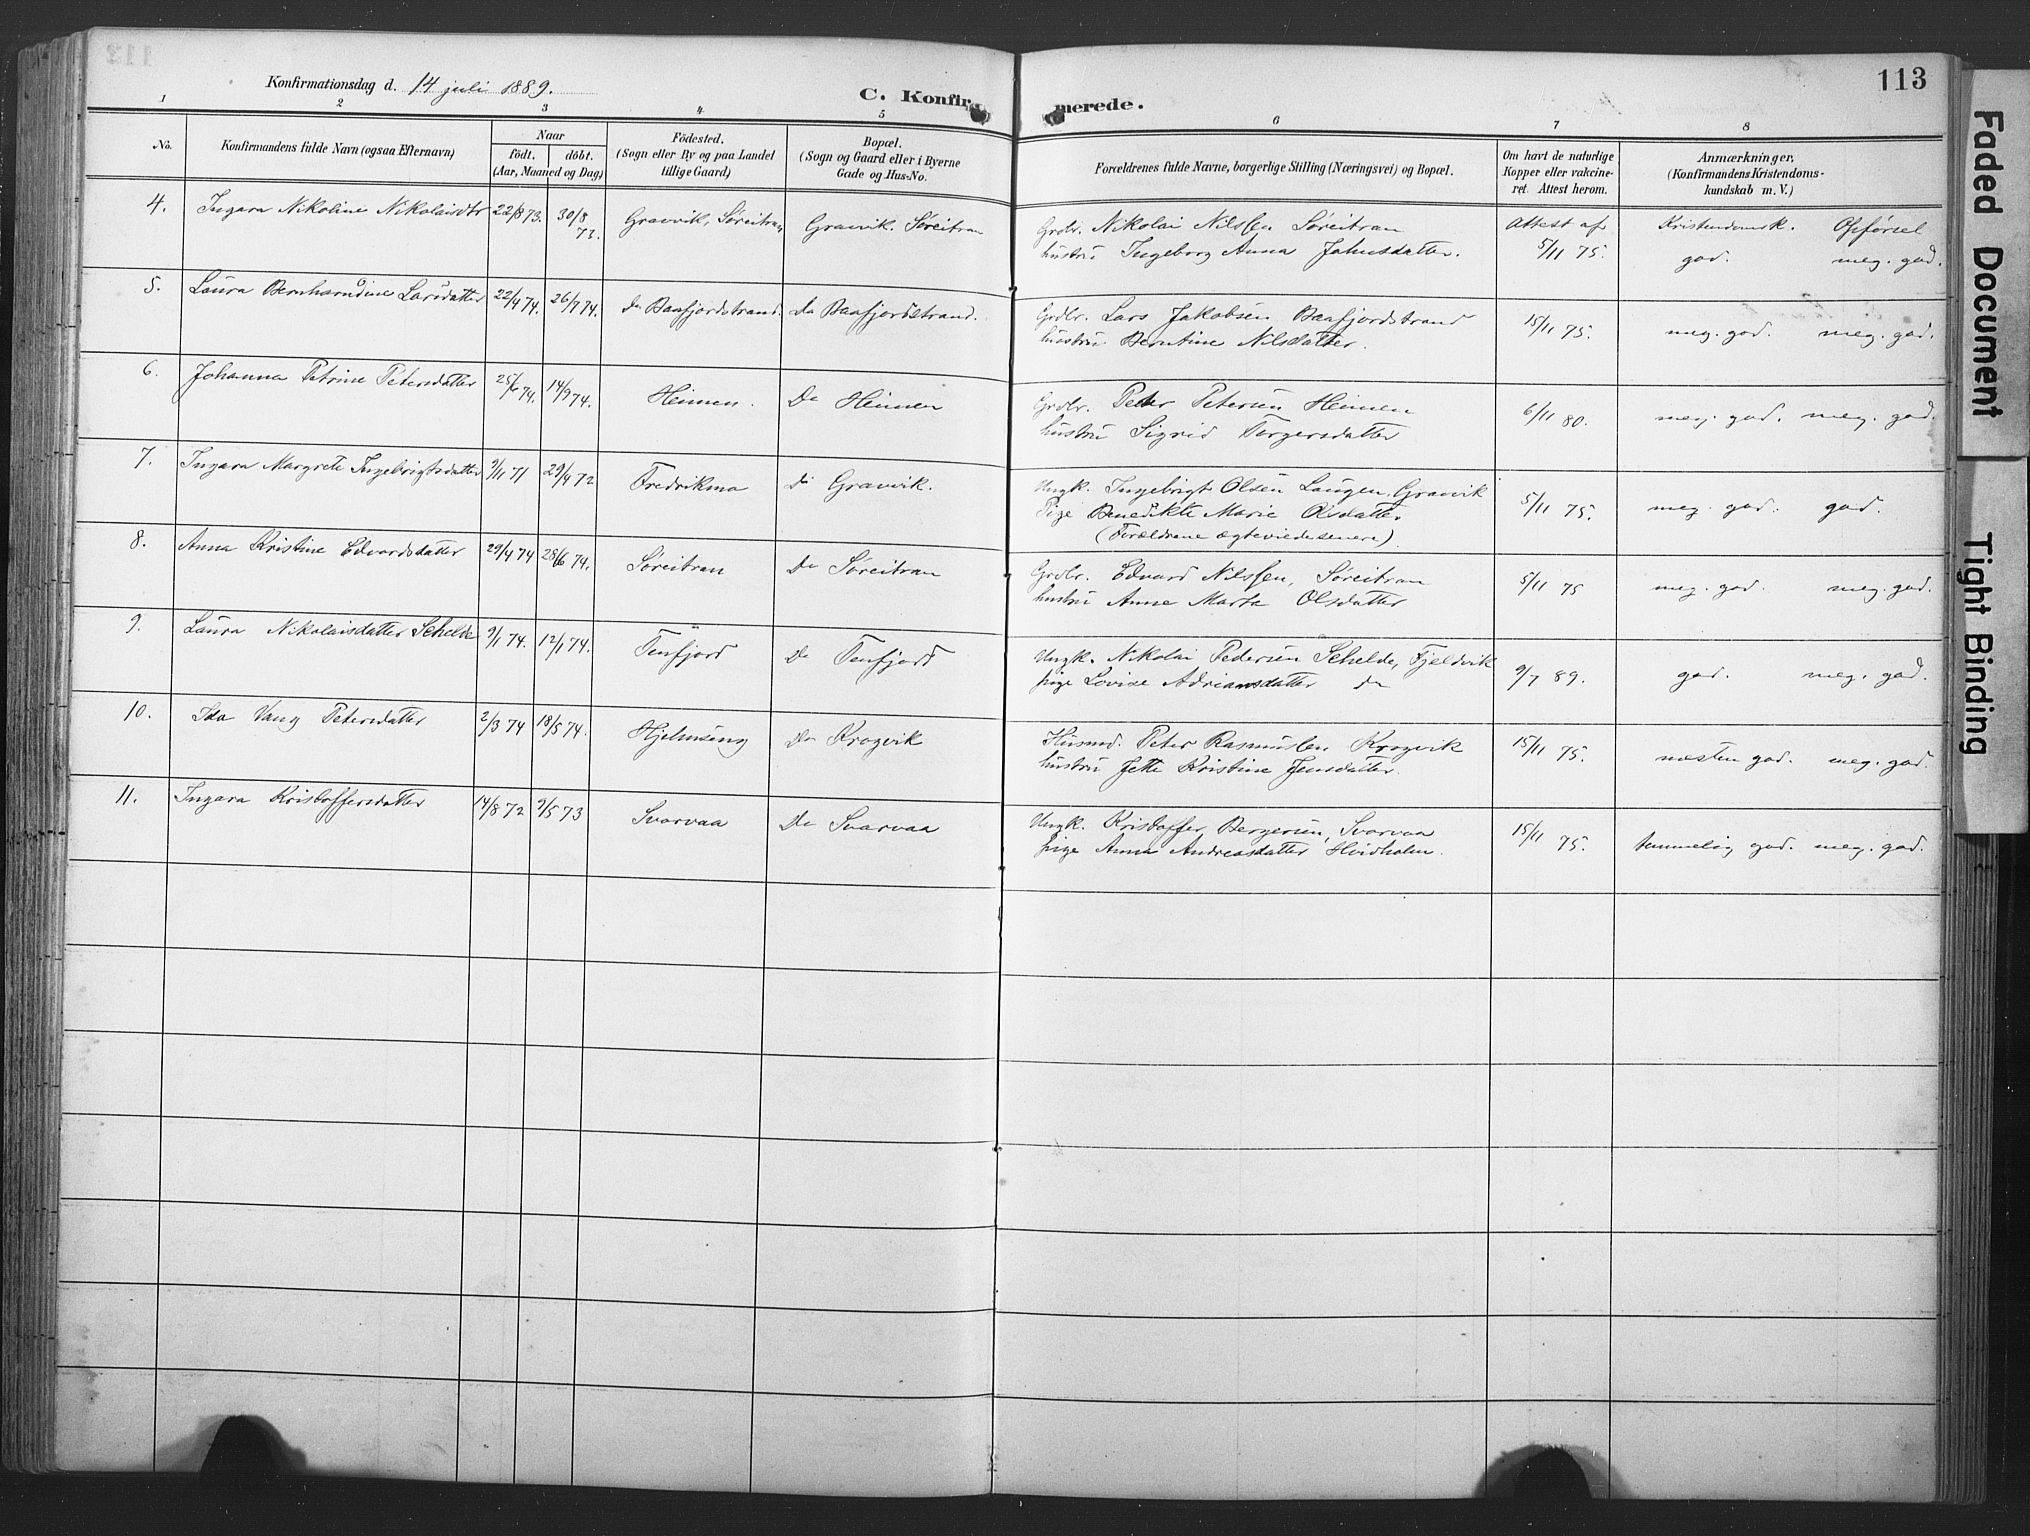 113
Konfirmationsdag d. 14 juli 1889.
C. Konfirmerede.
1 2 3 4 5 6 7 8
No.
Konfirmandens fulde Navn (ogsaa Efternavn)
Naar
födt. döbt.
(Aar, Maaned og Dag)
Födested.
(Sogn eller By og paa Landet
tillige Gaard)
Bopæl.
(Sogn og Gaard eller i Byerne
Gade og Hus-No.
Forældrenes fulde Navne, borgerlige Stilling (Næringsvei) og Bopæl.
Om havt de naturlige
Kopper eller vakcine-
ret. Attest herom.
Anmærkninger.
(Konfirmandens Kristendoms-
kundskab m. V.)
4. Ingara Nikoline Nikolaisdtr 22/8 73. 30/8 73. Gravvik, Søreitran Gravvik. Søreitran
Grdbr. Nikolai Nilssen Søreitran
hustru Ingeborg Anna Johnsdatter.
Attest af
5/11 75.
Kristendomsk. Opførsel
god. meg. god.
5. Laura Bernhardine Larsdatter 22/4 74. 26/7 74. Do Baafjordstrand. Do Baafjordstrand.
Grdbr. Lars Jakobsen Baafjordstrand
hustru Berntine Nilsdatter.
15/11 75. meg. god. meg. god.
6. Johanna Petrine Petersdatter 25/6 74. 14/9 74. Heimen. Do Heimen
Grdbr. Peter Petersen Heimen
hustru Sigrid Torgersdatter
6/11 80. meg. god. meg. god.
7. Ingara Margrete Ingebrigtsdatter 9/11 71 29/4 72 Fredrikmo Do Gravvik.
Ungk. Ingebrigt Olsen Laugen, Gravvik
Pige Benedikte Marie Olsdatter
(Forældrene ægteviede senere)
5/11 75. meg. god. god.
8. Anna Kristine Edvardsdatter 29/4 74 28/6 74. Søreitran Do Søreitran
Grdbr. Edvard Nilssen, Søreitran
hustru Anne Marta Olsdatter
5/11 75 meg. god. meg. god.
9. Laura Nikolaisdatter Schelde 9/1 74. 12/1 74. Tenfjord Do Tenfjord
Ungk. Nikolai Pedersen Schelde, Fjeldvik
pige Lovise Adriansdatter do
9/7 89. god. meg. god.
10. Ida Vang Petersdatter 2/3 74 18/5 74. Hjelmseng Do Krogvik
Husmd. Peter Rasmussen Krogvik
hustru Jette Kristine Jensdatter.
15/11 75. næsten god. meg. god.
11. Ingara Kristoffersdatter 14/8 72 9/5 73 Svarvaa Do Svarvaa
Ungk. Kristoffer Bergersen, Svarvaa
pige Anna Andreasdatter, Hvidholm.
15/11 75. temmelig god. meg. god.
Faded Document
Tight Binding